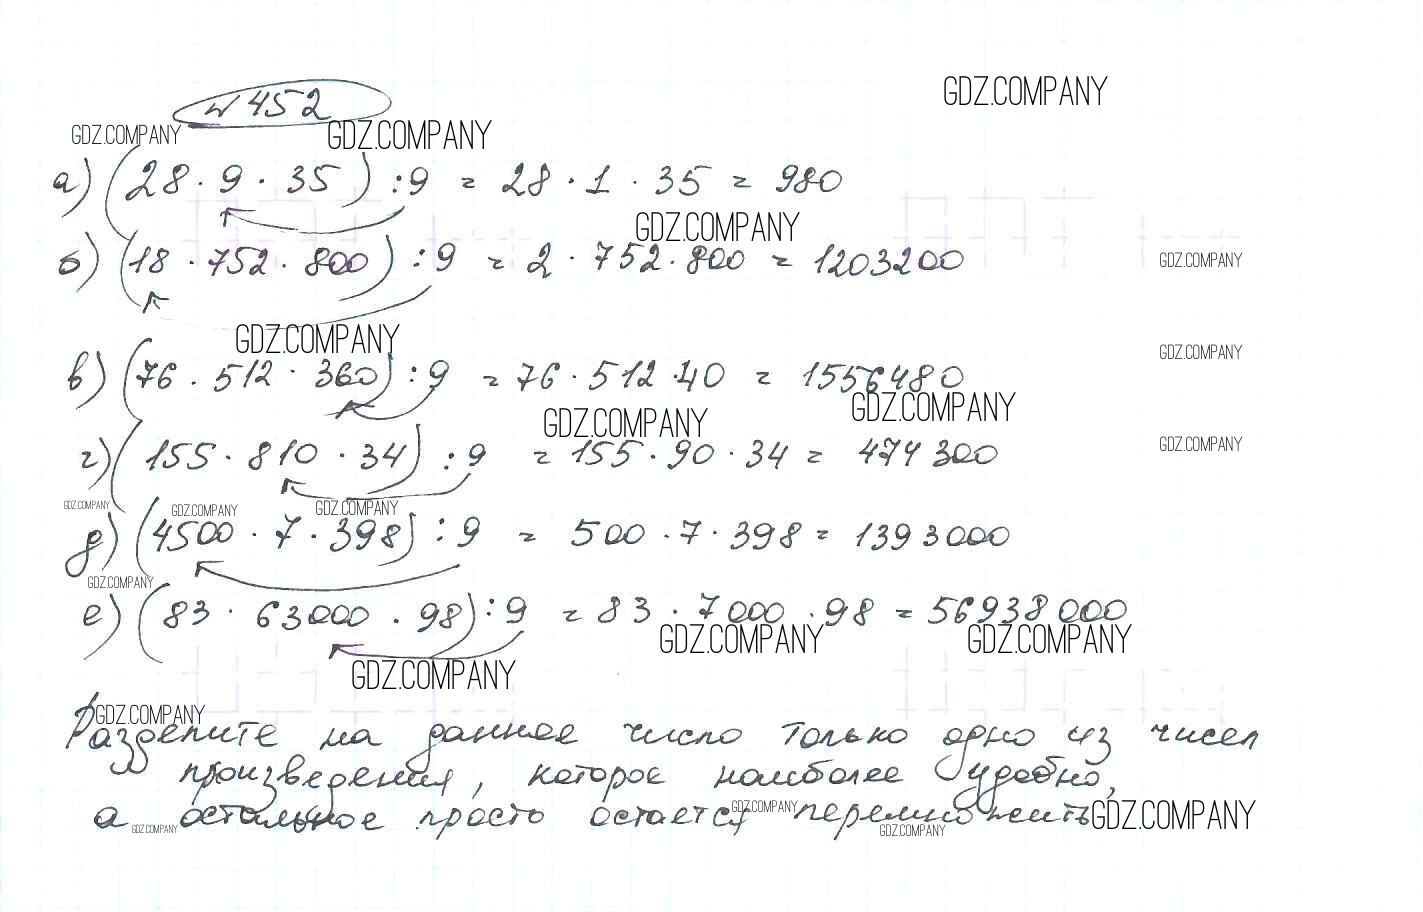 GDZ.COMPANY
№ 452
GDZ.COMPANY GDZ.COMPANY
а) (28 · 9 · 35) : 9 = 28 · 1 · 35 = 980
GDZ.COMPANY
б) (18 · 752 · 800) : 9 = 2 · 752 · 800 = 1203200
GDZ.COMPANY
GDZ.COMPANY
GDZ.COMPANY
в) (76 · 512 · 360) : 9 = 76 · 512 · 40 = 1556480
GDZ.COMPANY GDZ.COMPANY
GDZ.COMPANY
г) (155 · 810 · 34) : 9 = 155 · 90 · 34 = 474300
GDZ.COMPANY GDZ.COMPANY GDZ.COMPANY
д) (4500 · 7 · 398) : 9 = 500 · 7 · 398 = 1393000
GDZ.COMPANY
е) (83 · 63000 · 98) : 9 = 83 · 7000 · 98 = 56938000
GDZ.COMPANY GDZ.COMPANY
GDZ.COMPANY
GDZ.COMPANY
Разделите на данное число только одно из чисел
произведения, которое наиболее удобно,
а остальное просто остается перемножить
GDZ.COMPANY GDZ.COMPANY
GDZ.COMPANY GDZ.COMPANY